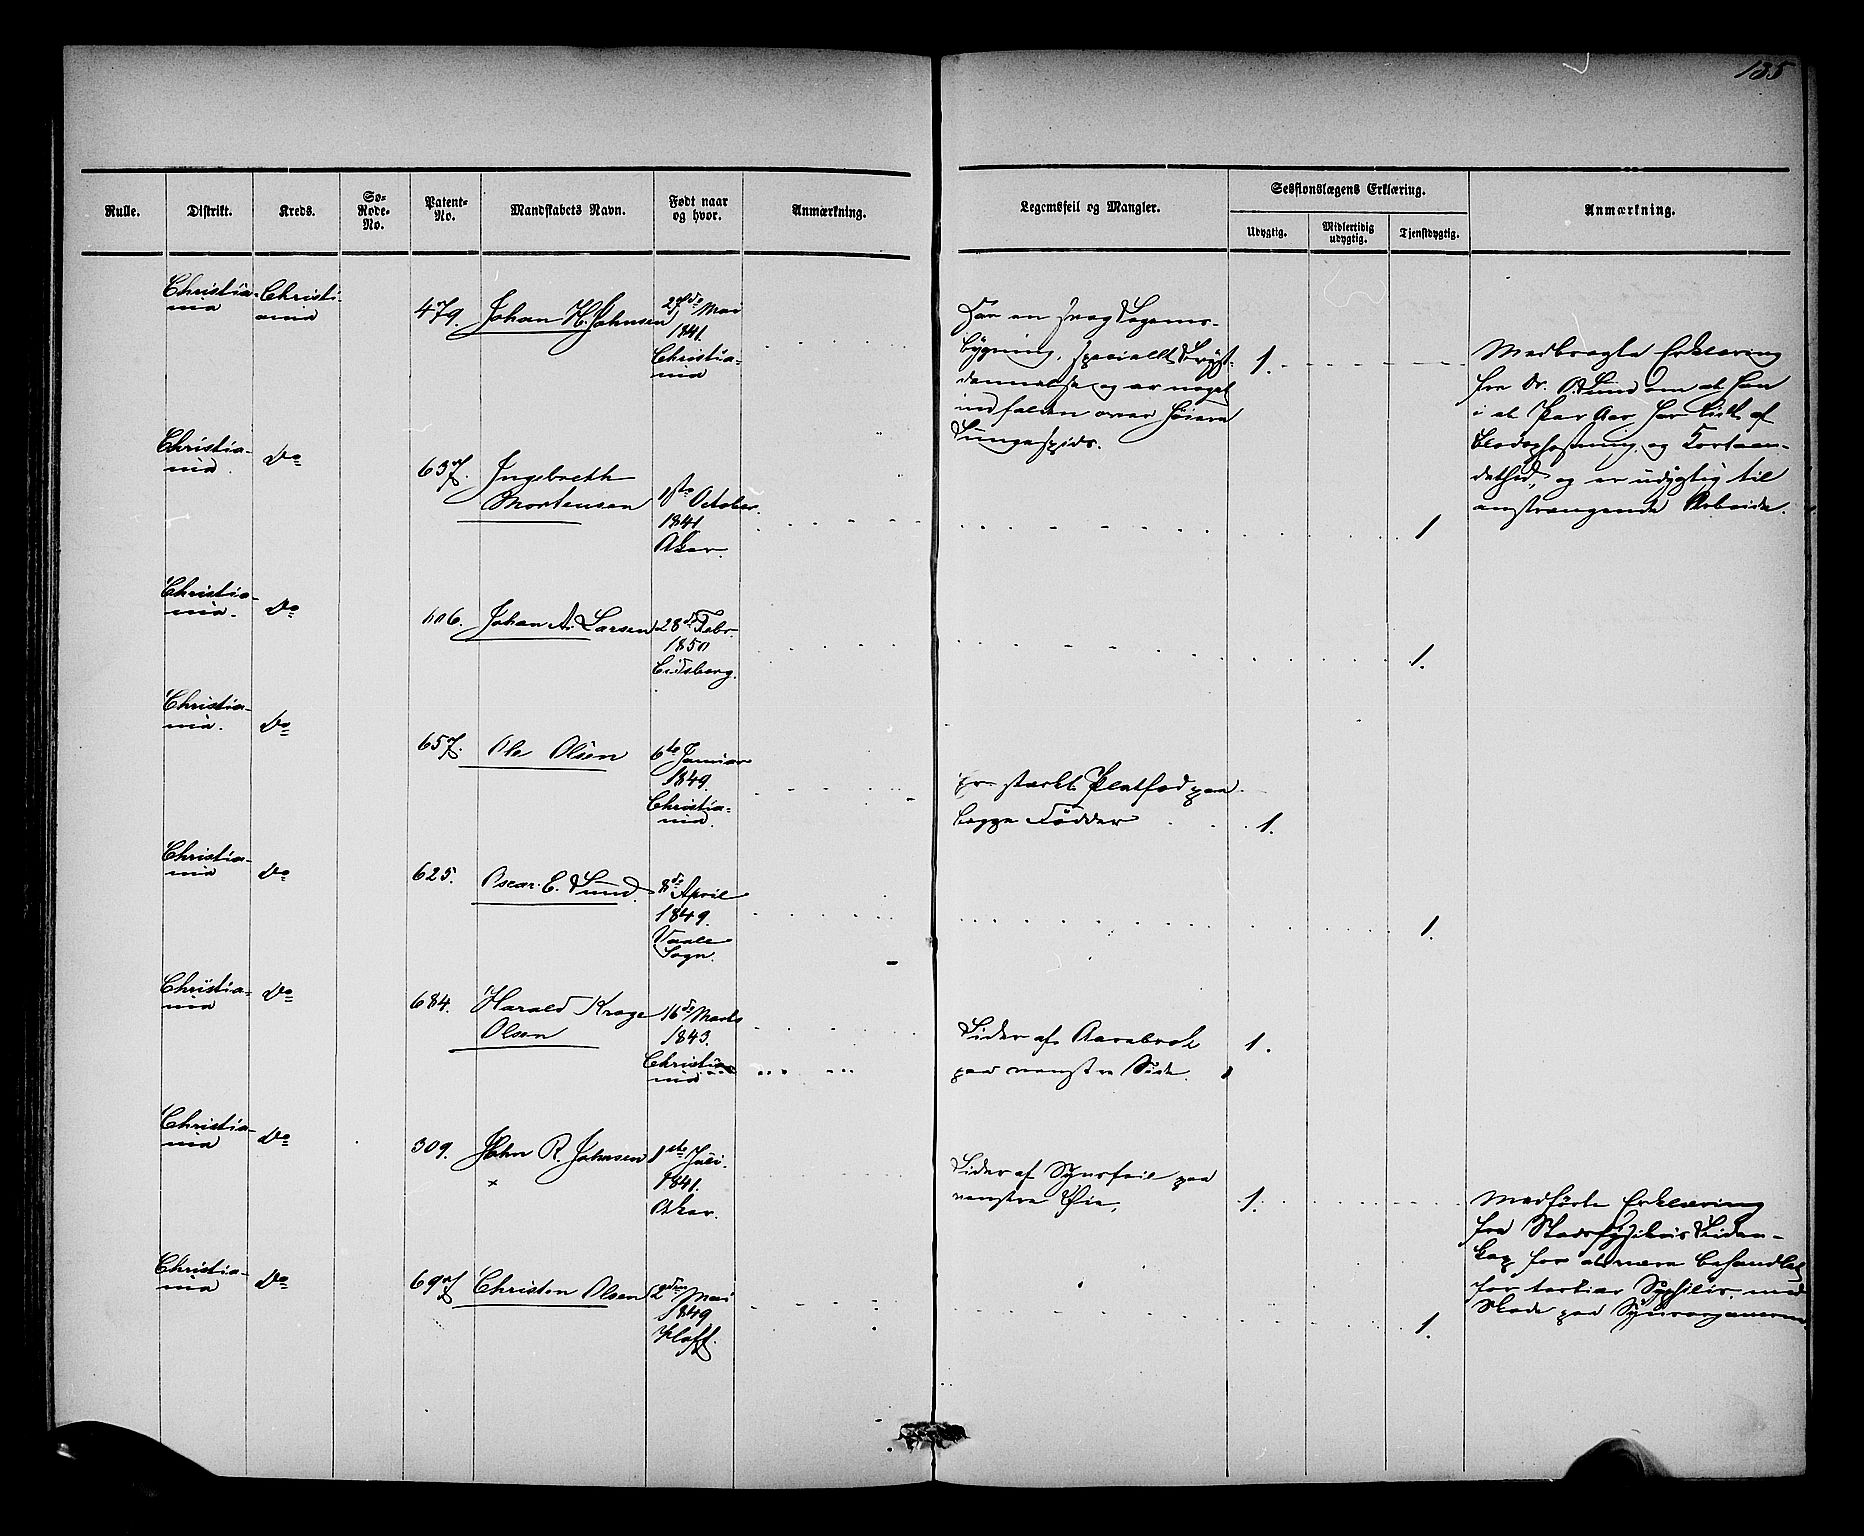 135
Rulle. Distrikt. Kreds. So-Rode-No. Patent-No. Mandskabets Navn. Født naar og hvor. Anmærkning. Legemsfeil og Mangler. Sessionslægens Erklæring. Anmærkning.
Udygtig. Midlertidig udygtig. Tjenstdygtig.
Christia- Christi
nia ania
479. Johan H. Johnsen 27de Mai
1841.
Christia-
nia
Har en svag Legems-
bygning, specielt Bryst-
dannelse og er noget
indfalden over høire
Lungespids.
1.
Medbragte Erklæring
fra Dr. Lund om at han
i et Par Aar har lidt af
Blodophostning og Kortaan-
dethed, og er udygtig til
anstrængende Arbeide.
Christia-
nia. Do
637. Ingebreth
Mortensen
1ste October
1841
Aker.
1
Christia-
nia. Do
606. Johan A. Larsen 28de Febr.
1850
Eidsberg.
1.
Christia-
nia. Do
657. Ole Olsen 6te Januar
1849.
Christia-
nia.
stærkt Platfod paa
begge Fødder
1.
Christia-
nia Do
625. Oscar E. Lund. 8de April
1849.
Vaale
Sogn.
1.
Christia-
nia Do
684. Harald Krage
Olsen
16de Marts
1843.
Christia-
nia
Lider af Aarebrok
paa venstre Side.
1.
Christia-
nia Do
309. John R. Johnsen 1ste Juli.
×
1841.
Aker.
Lider af Synsfeil paa
venstre Øie,
1.
Medførte Erklæring
fra Stadsfysikus
for at være behandlet
for tertiær Syphilis med
Skade paa Synsorganerne.
Christia-
nia Do
697 Christen Olsen 2den Mai
1849
Høff.
1.